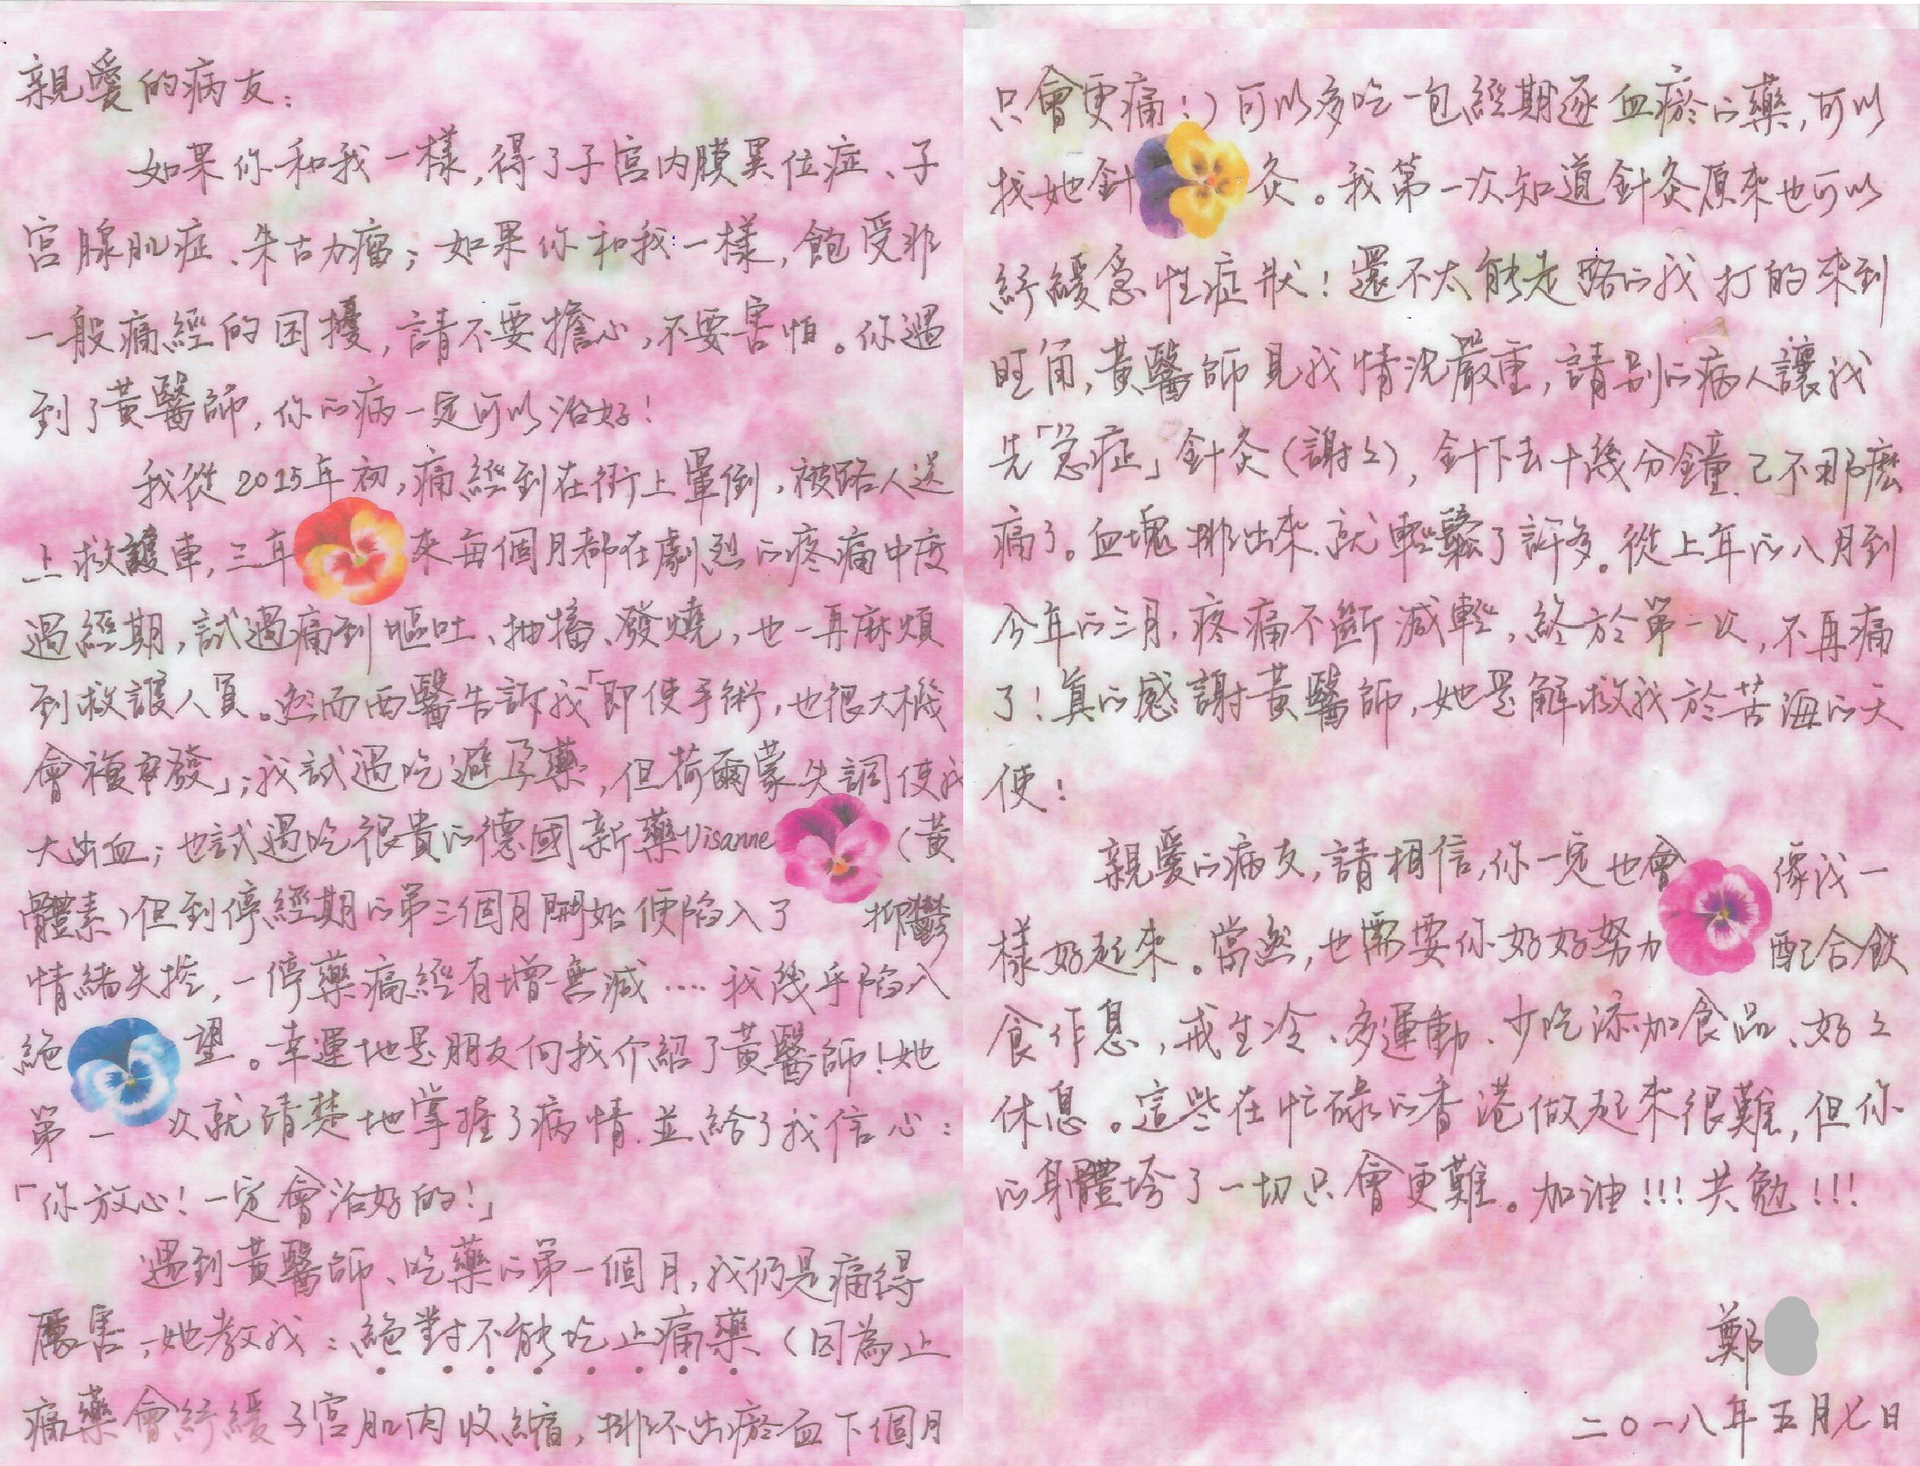 親愛的病友：
如果你和我一樣，得了子宮內膜異位症、子
宮腺肌症、朱古力瘤；如果你和我一樣，飽受非
一般痛經的困擾，請不要擔心，不要害怕。你遇
到了黃醫師，你的病一定可以治好！
我從2015年初，痛經到在街上暈倒，被路人送
上救護車，三年來每個月都在劇烈的疼痛中度
過經期，試過痛到嘔吐、抽搐、發燒，也一再麻煩
到救護人員。然而西醫告訴我「即使手術，也很大機
會複發」；我試過吃避孕藥，但荷爾蒙失調使我
大出血；也試過吃很貴的德國新藥Visanne（黃
體素）但到停經期的第三個月開始便陷入了抑鬱
情緒失控，一停藥痛經有增無減....我幾乎陷入
絕望。幸運地是朋友向我介紹了黃醫師！她
第一次就清楚地掌握了病情，並給了我信心：
「你放心！一定會治好的！」
遇到黃醫師、吃藥的第一個月，我仍是痛得
厲害，她教我：絕對不能吃止痛藥（因為止
痛藥會紓緩子宮肌肉收縮，排不出瘀血下個月
只會更痛！）可以多吃一包經期逐血瘀的藥，可以
找她針灸。我第一次知道針灸原來也可以
紓緩急性症狀！還不太能走路的我打的來到
旺角，黃醫師見我情況嚴重，請別的病人讓我
先「急症」針灸（謝々），針下去十幾分鐘，已不那麼
痛了。血塊排出來，就輕鬆了許多。從上年的八月到
今年的三月，疼痛不斷減輕，終於第一次，不再痛
了！真的感謝黃醫師，她是解救我於苦海的天
使！
親愛的病友，請相信，你一定也會像我一
樣好起來。當然，也需要你好好努力配合飲
食作息，戒生冷、多運動、少吃添加食品、好々
休息。這些在忙碌的香港做起來很難，但你
的身體垮了一切只會更難。加油！！！共勉！！！
鄭
二〇一八年五月七日